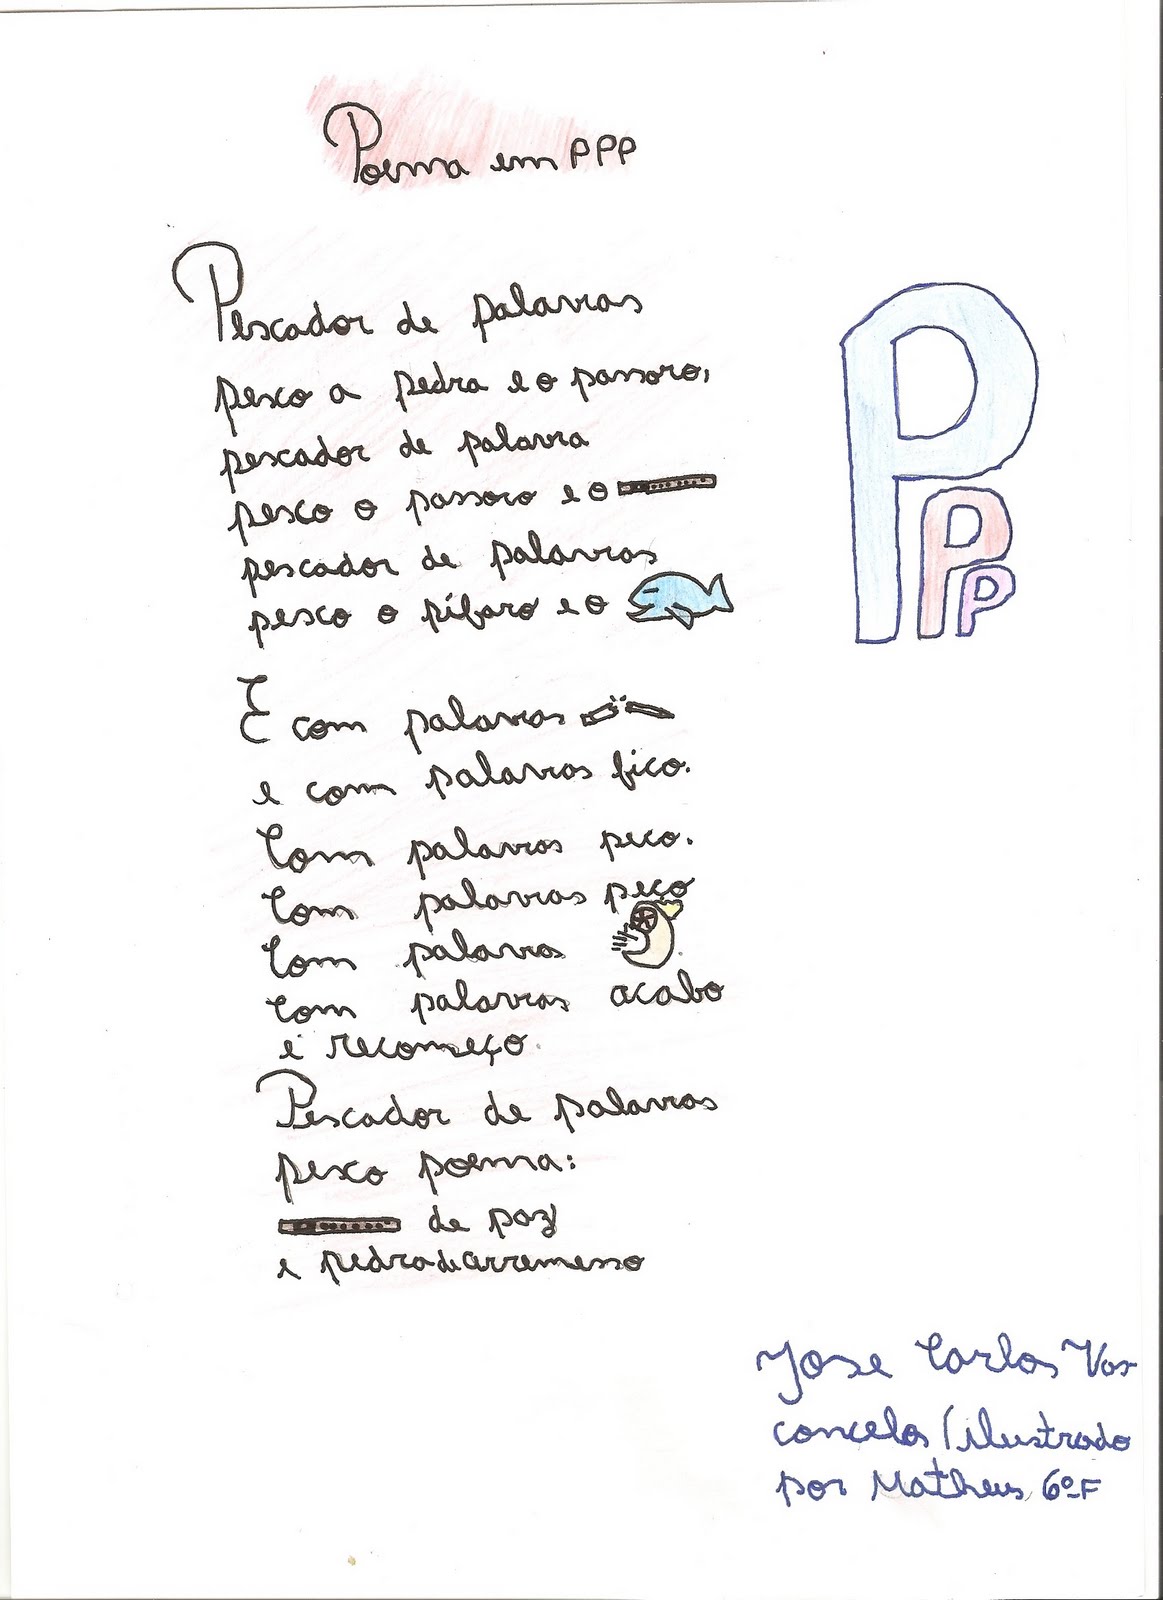 Poema em PPP
Pescador de palavras
pesco a pedra e o passoro,
pescador de palavra
pesco o passoro e o
pescador de palavras
pesco o pífaro e o
E com palavras
e com palavras fico.
Com palavras peco.
Com palavras peço
Com palavras
Com palavras acabo
e recomeço.
Pescador de palavras
pesco poema:
de paz
e pedra de arremesso
P
P
P
Jose Carlos Vas-
concelos / ilustrado
por Matheus 6º F